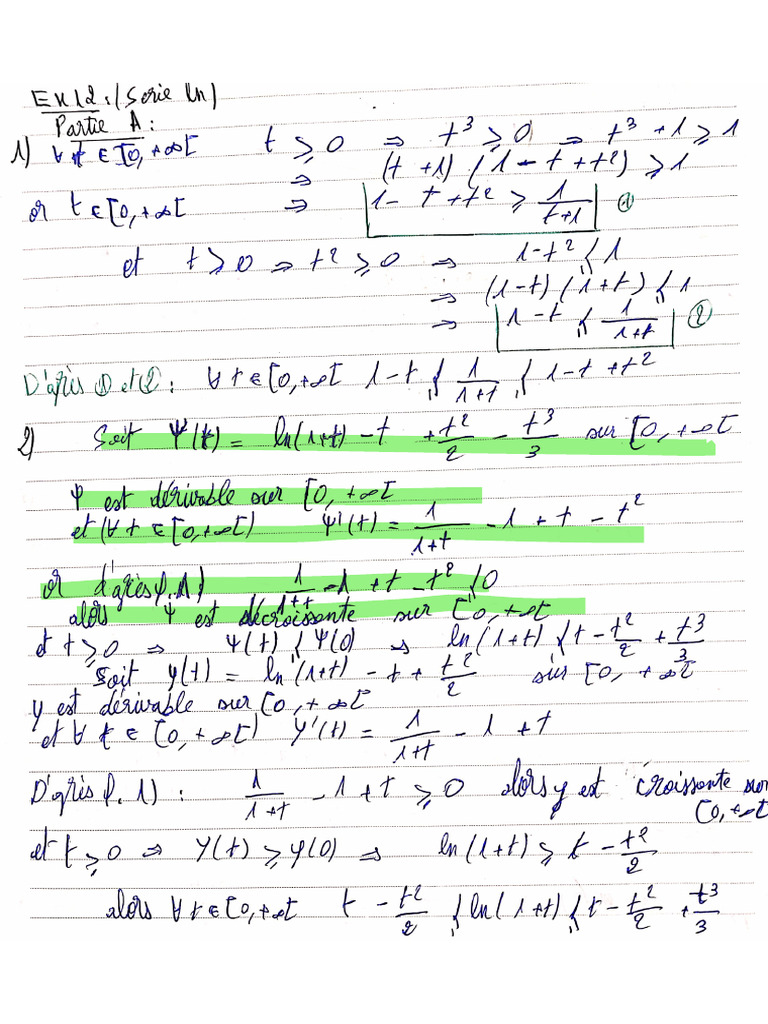 EX12: (Serie ln)
Partie A:
1) ∀ t ∈ [0, +∞[ t ⩾ 0 ⇒ t³ ⩾ 0 ⇒ t³ + 1 ⩾ 1
⇒ (t + 1) (1 - t + t²) ⩾ 1
or t ∈ [0, +∞[ ⇒ 1 - t + t² ⩾ 1/(t+1) ①
et t ⩾ 0 ⇒ t² ⩾ 0 ⇒ 1 - t² ⩽ 1
⇒ (1 - t) (1 + t) ⩽ 1
⇒ 1 - t ⩽ 1/(1+t) ②
D'après ① et ② : ∀ t ∈ [0, +∞[ 1 - t ⩽ 1/(1+t) ⩽ 1 - t + t²
2) Soit Ψ(t) = ln(1+t) - t + t²/2 - t³/3 sur [0, +∞[
Ψ est dérivable sur [0, +∞[
et (∀ t ∈ [0, +∞[) Ψ'(t) = 1/(1+t) - 1 + t - t²
or d'après p. 1) 1/(1+t) - 1 + t - t² ⩽ 0
alors Ψ est décroissante sur [0, +∞[
et t ⩾ 0 ⇒ Ψ(t) ⩽ Ψ(0) ⇒ ln(1+t) ⩽ t - t²/2 + t³/3
Soit φ(t) = ln(1+t) - t + t²/2 sur [0, +∞[
φ est dérivable sur [0, +∞[
et ∀ t ∈ [0, +∞[) φ'(t) = 1/(1+t) - 1 + t
D'après p. 1) : 1/(1+t) - 1 + t ⩾ 0 alors φ est croissante sur
[0, +∞[
et t ⩾ 0 ⇒ φ(t) ⩾ φ(0) ⇒ ln(1+t) ⩾ t - t²/2
alors ∀ t ∈ [0, +∞[ t - t²/2 ⩽ ln(1+t) ⩽ t - t²/2 + t³/3